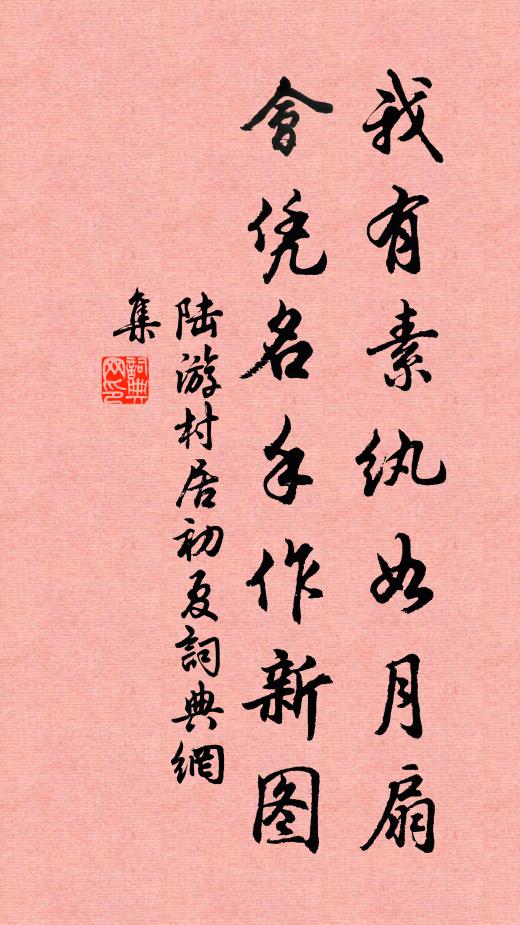 我有素纨如月扇
會凭名手作新图
陆游村居初夏詞典網
集
詞典
网印